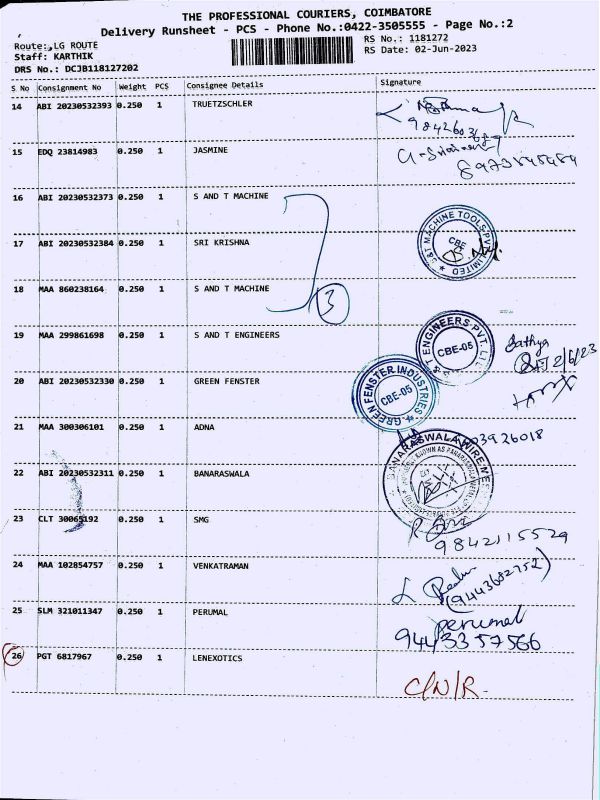 THE PROFESSIONAL COURIERS, COIMBATORE
Delivery Runsheet - PCS - Phone No.:0422-3505555 - Page No.:2
Route: LG ROUTE
RS No.: 1181272
Staff: KARTHIK
RS Date: 02-Jun-2023
DRS No.: DCJB118127202
S No Consignment No Weight PCS Consignee Details Signature
14 ABI 20230532393 0.250 1 TRUETZSCHLER
15 EDQ 23814983 0.250 1 JASMINE
8973845484
16 ABI 20230532373 0.250 1 S AND T MACHINE
17 ABI 20230532384 0.250 1 SRI KRISHNA
S&T MACHINE TOOLS PVT LIMITED
CBE
18 MAA 860238164 0.250 1 S AND T MACHINE
3
19 MAA 299861698 0.250 1 S AND T ENGINEERS
S & T ENGINEERS PVT. LTD
CBE-05
Sathya
2/6/23
20 ABI 20230532330 0.250 1 GREEN FENSTER
GREEN FENSTER INDUSTRIES
CBE-05
21 MAA 300306101 0.250 1 ADNA
03926018
22 ABI 20230532311 0.250 1 BANARASWALA
BANARASWALA WIRE MESH
23 CLT 30065192 0.250 1 SMG
9842115529
24 MAA 102854757 0.250 1 VENKATRAMAN
(9443682752)
25 SLM 321011347 0.250 1 PERUMAL
perumal
9443357566
26 PGT 6817967 0.250 1 LENEXOTICS
C/N/R.